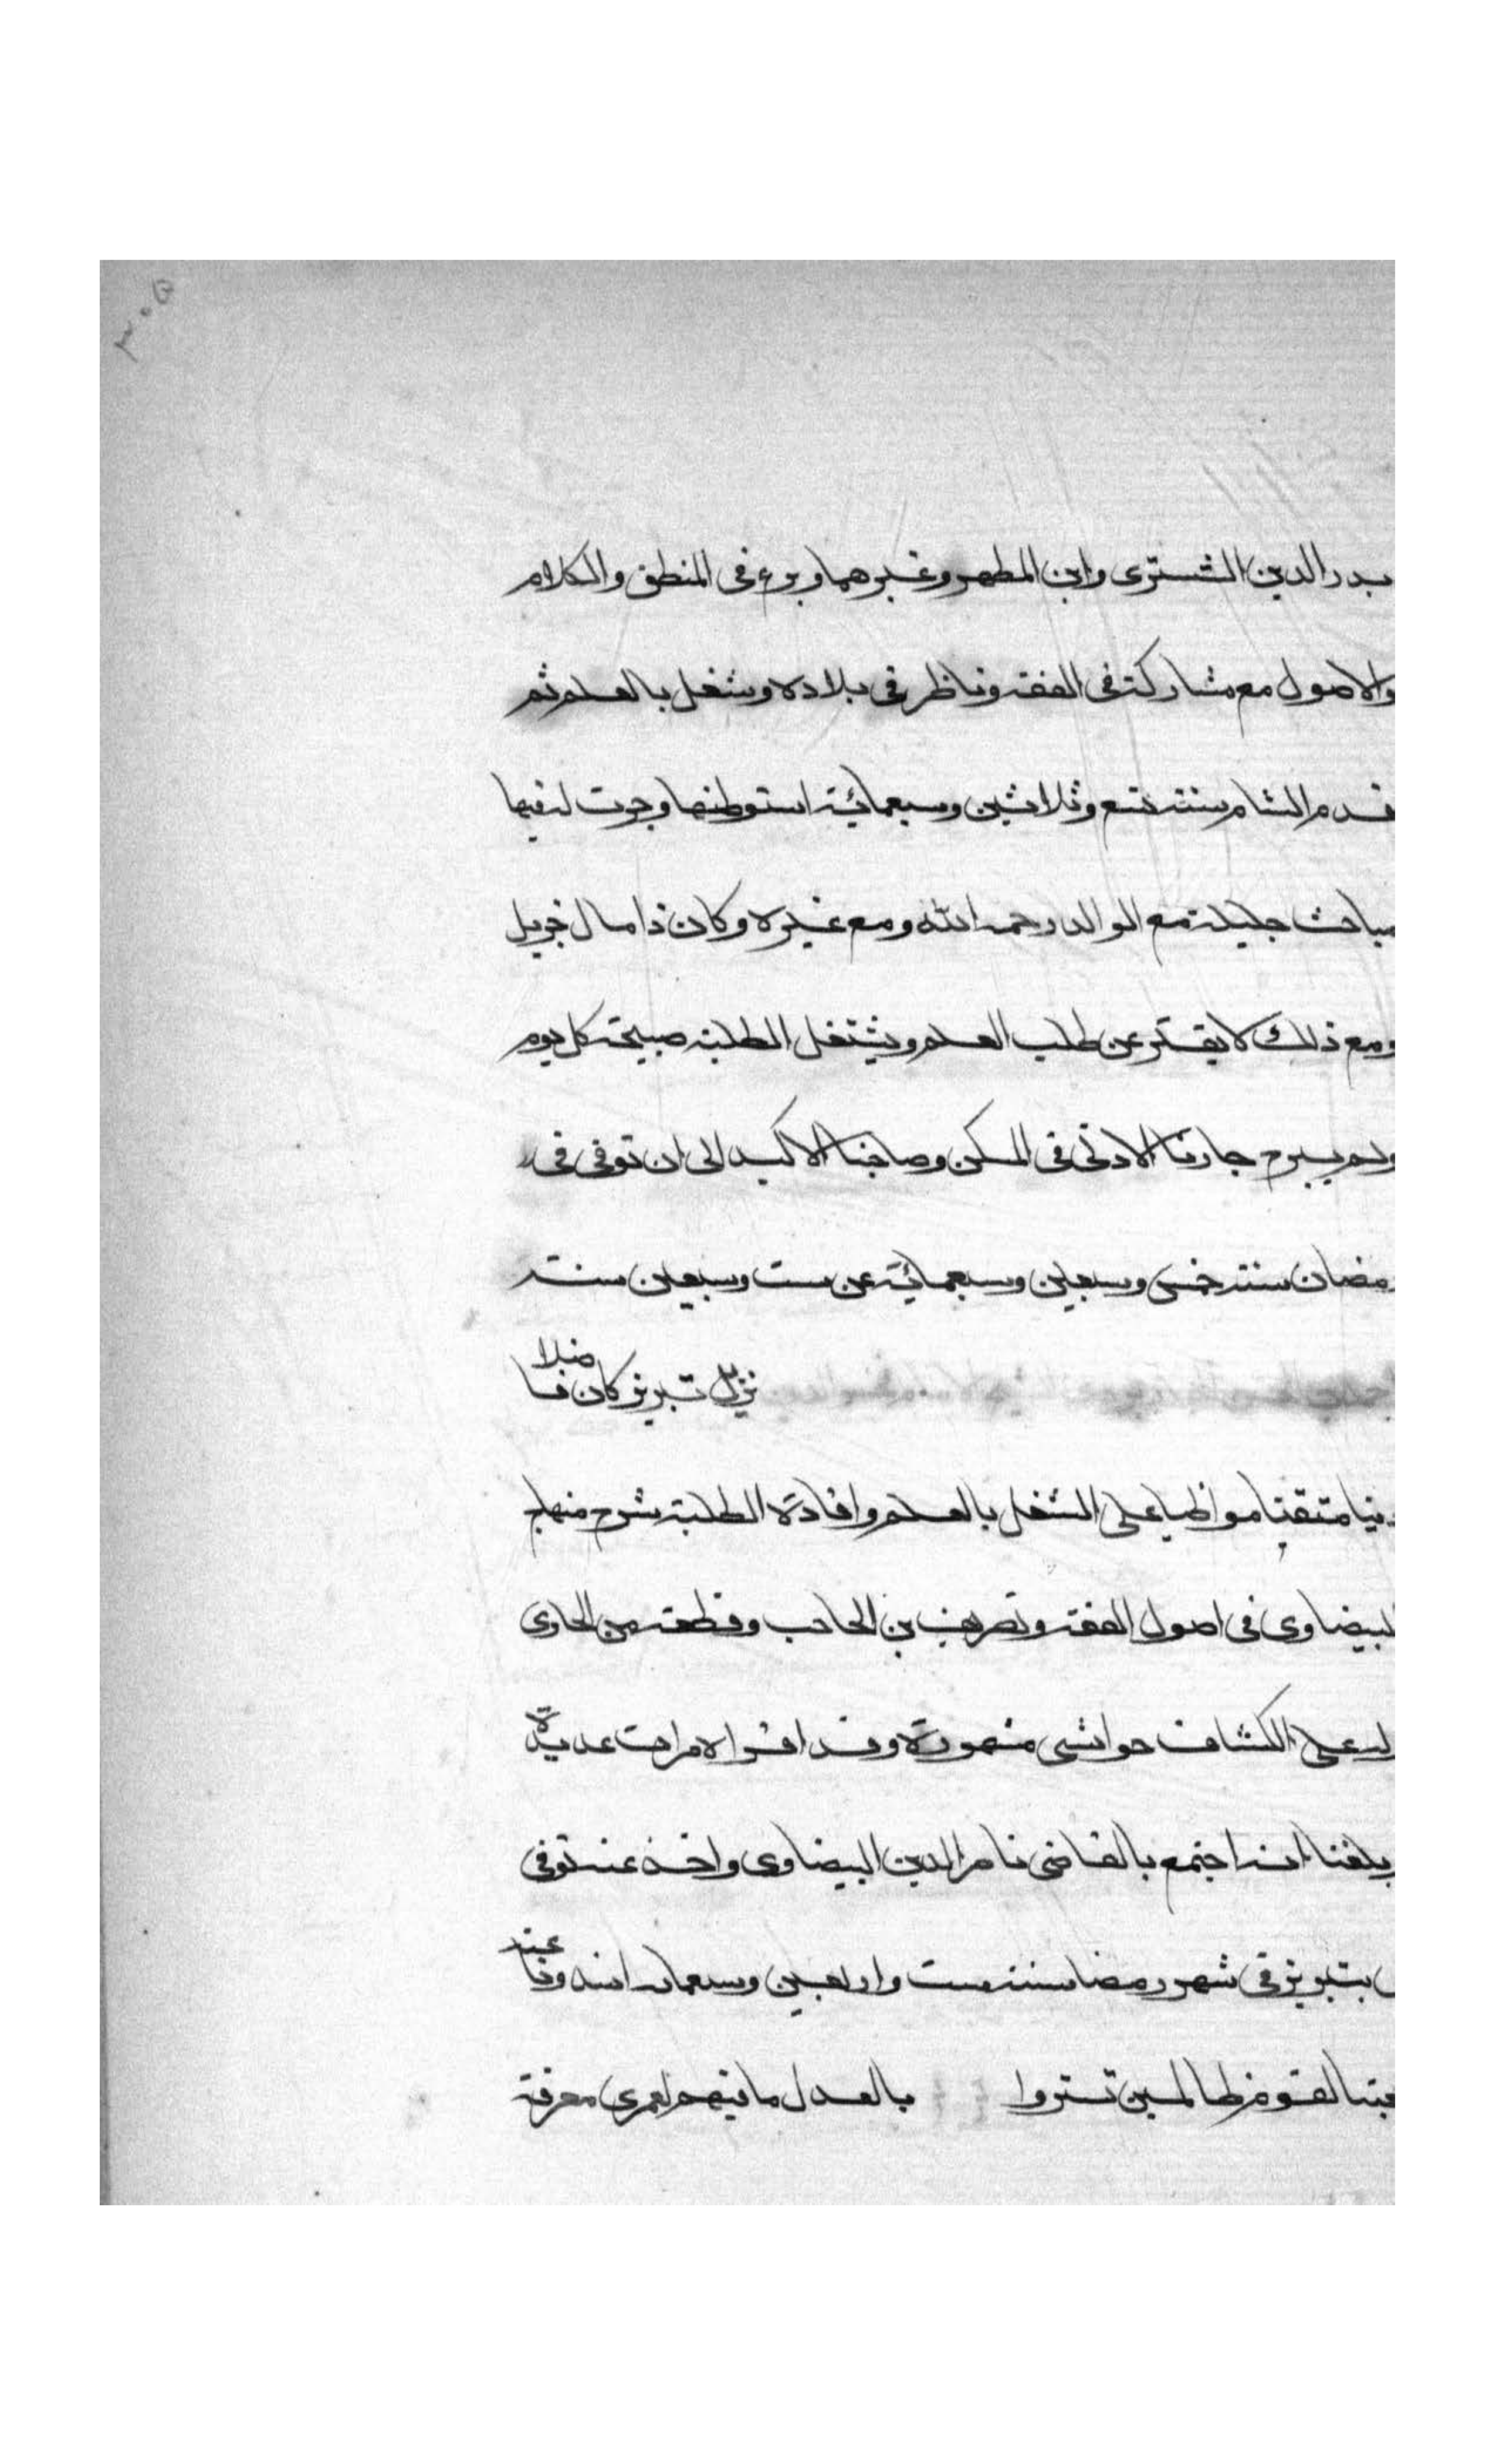 ٣٠٥
بدر الدين الششترى وابن المطهر وغيرهما وبرع فى المنطق والكلام
والاصول مع مشاركة فى الفقه وناظر فى بلاده وشغل بالعلم ثم
قدم الشام سنة تسع وثلاثين وسبعمائة استوطنها وجرت له فيها
مباحث جليلة مع الوالد رحمه الله ومع غيره وكان ذا مال جزيل
ومع ذلك لا يفتر عن طلب العلم ويشتغل الطلبة صبيحة كل يوم
ولم يبرح جارنا الادنى فى المسكن وصاحبنا الاكيد الى ان توفى فى
رمضان سنة خمس وسبعين وسبعمائة عن ست وسبعين سنة
نزيل تبريز كان فاضلا
دينا متقنا مواظبا على الشغل بالعلم وافادة الطلبة شرح منهاج
البيضاوى فى اصول الفقه وتصريف بن الحاجب وقطعة من الحاوى
وله على الكشاف حواشى مشهورة وقد اقراه مرات عديدة
وبلغنا انه اجتمع بالقاضى ناصر الدين البيضاوى واخذ عنه توفى
بتبريز فى شهر رمضان سنة ست واربعين وسبعمائة
عجبا لقوم ظالمين تستروا بالعدل ما فيهم لعمرى معرفة